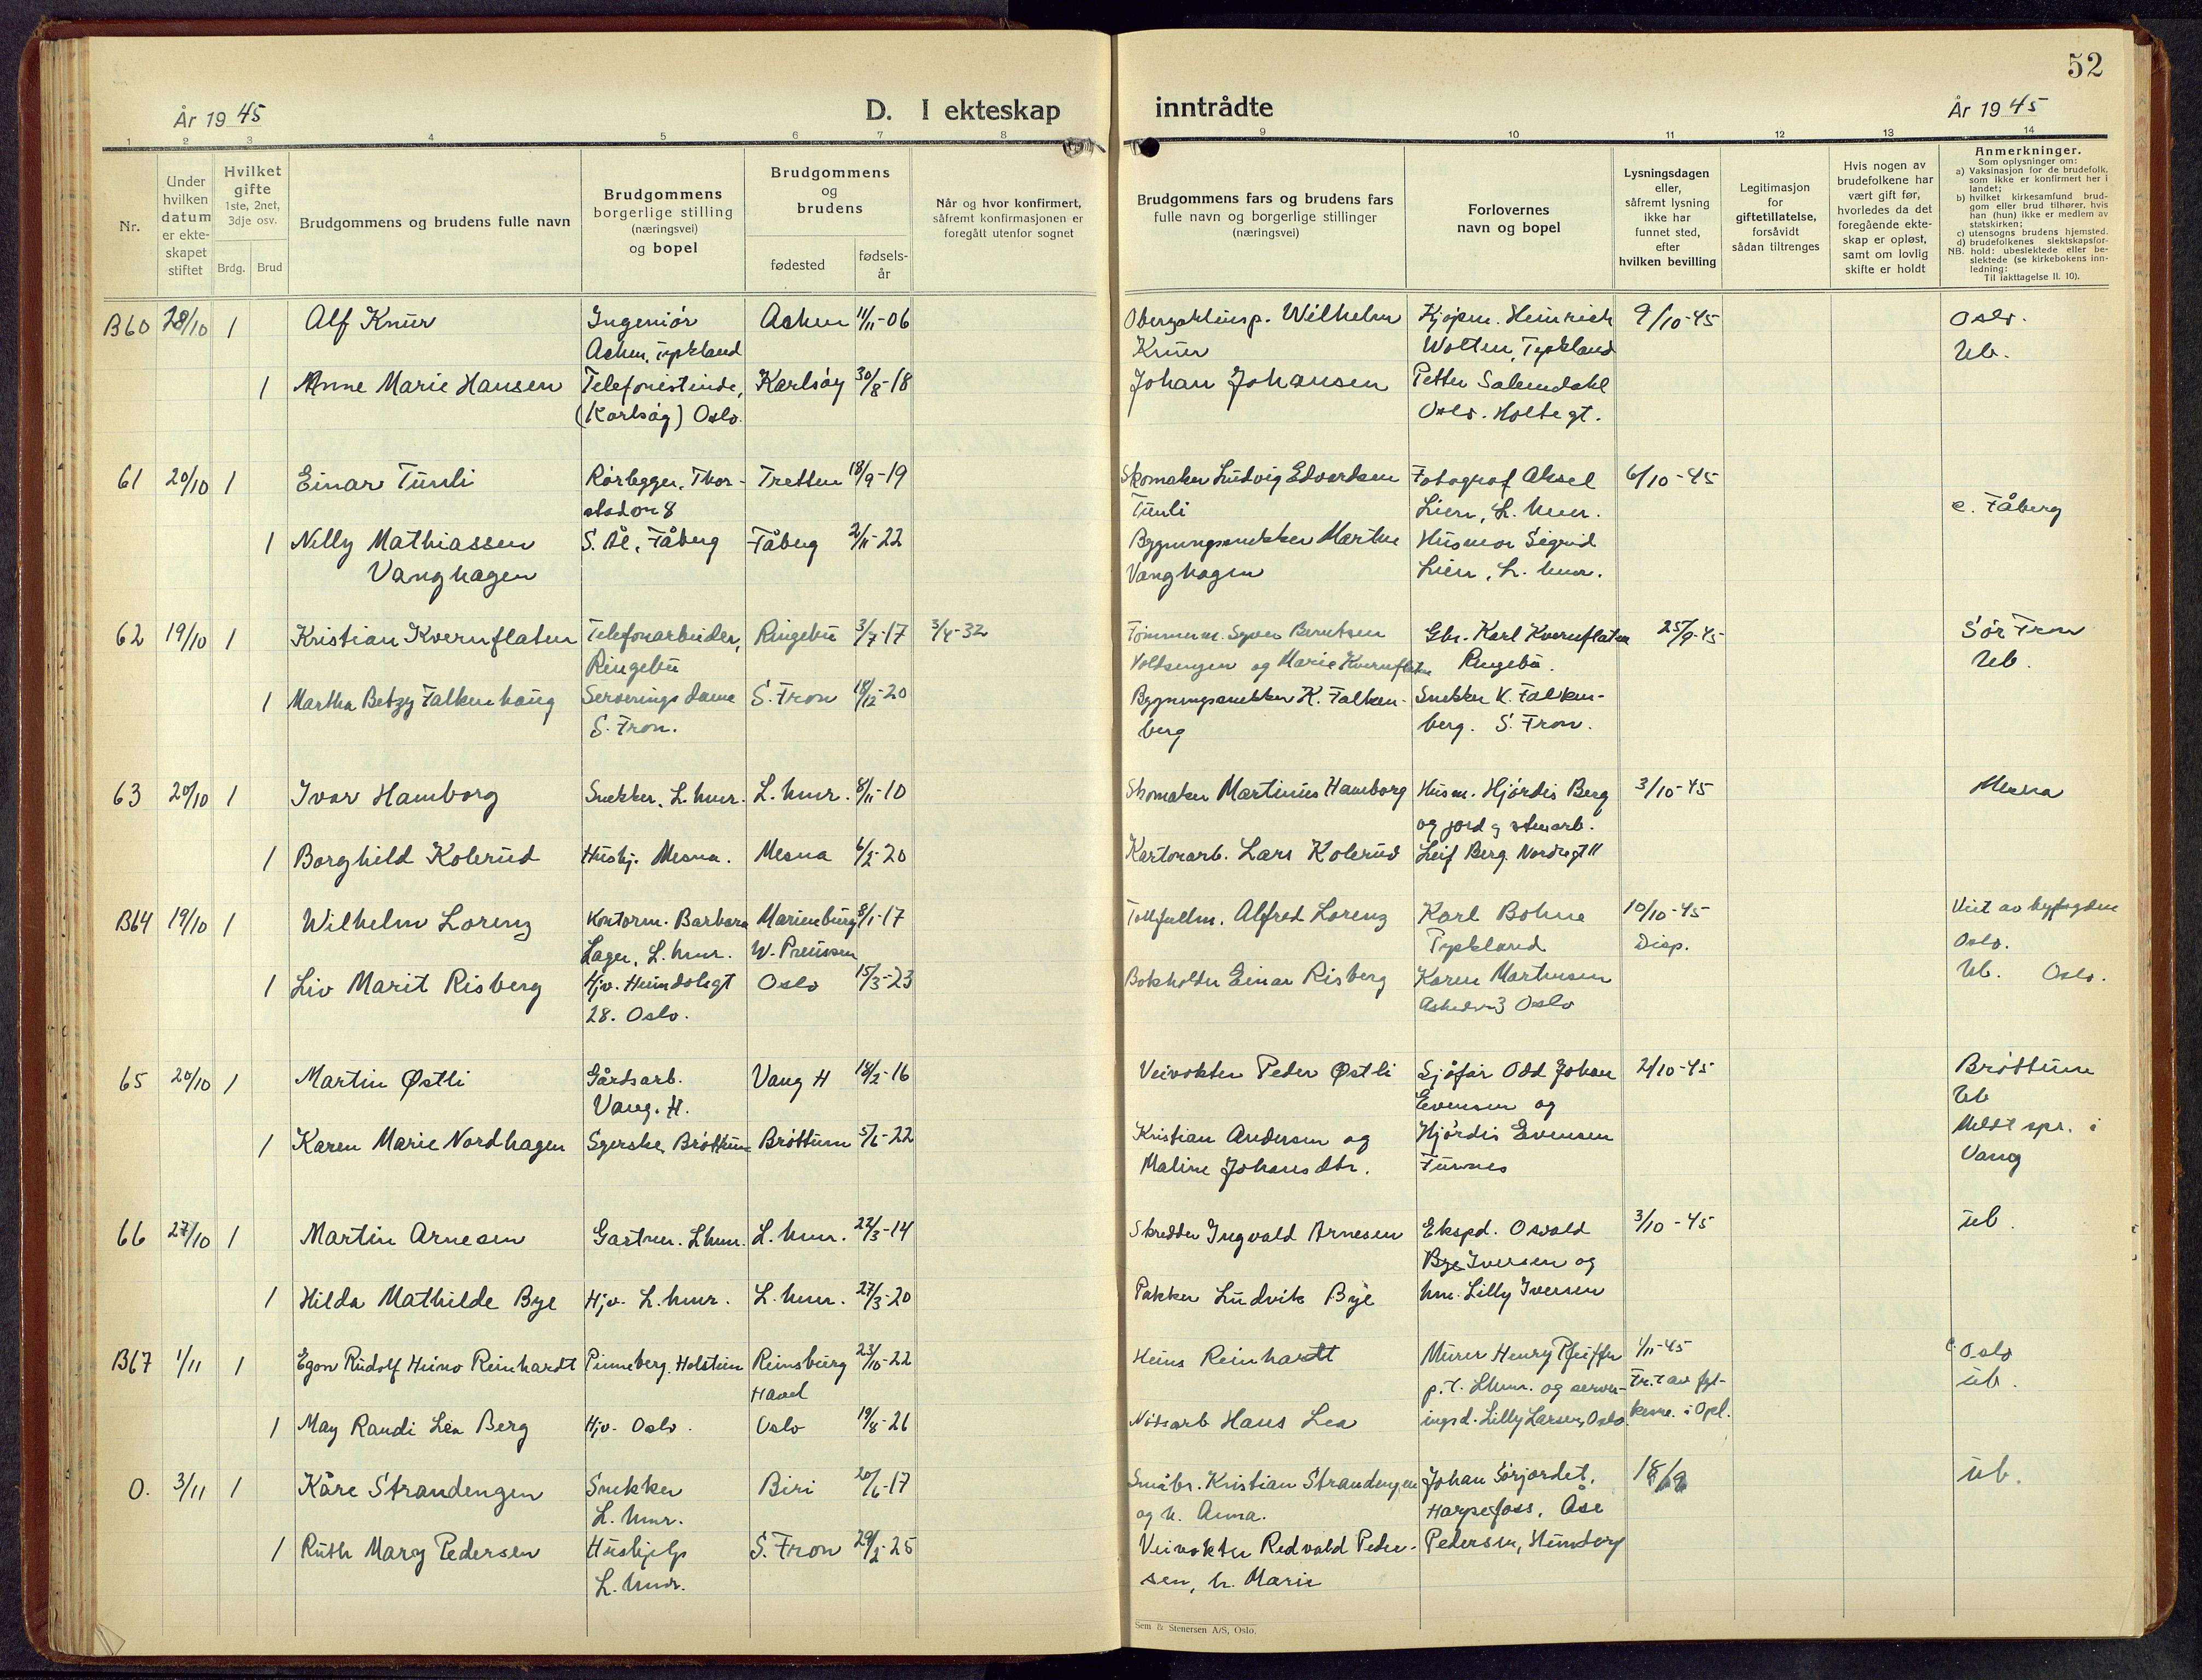 52
År 1945
D. I ekteskap inntrådte
År 1945
1 2 3 4 5 6 7 8 9 10 11 12 13 14
Nr.
Under hvilken datum er ekteskapet stiftet
Hvilket gifte 1ste, 2net, 3dje osv.
Brdg. Brud
Brudgommens og brudens fulle navn
Brudgommens borgerlige stilling (næringsvei) og bopel
Brudgommens og brudens
fødested
fødselsår
Når og hvor konfirmert, såfremt konfirmasjonen er foregått utenfor sognet
Brudgommens fars og brudens fars fulle navn og borgerlige stillinger (næringsvei)
Forlovernes navn og bopel
Lysningsdagen eller, såfremt lysning ikke har funnet sted, efter hvilken bevilling
Legitimasjon for giftetillatelse, forsåvidt sådan tiltrenges
Hvis nogen av brudefolkene har vært gift før, hvorledes da det foregående ekteskap er opløst, samt om lovlig skifte er holdt
Anmerkninger.
Som oplysninger om:
a) Vaksinasjon for de brudefolk, som ikke er konfirmert her i landet;
b) hvilket kirkesamfund brudgom eller brud tilhører, hvis han (hun) ikke er medlem av statskirken;
c) utensogns brudens hjemsted.
d) brudefolkenes slektskapsforhold: ubeslektede eller beslektede (se kirkebokens innledning:
NB.
Til iakttagelse II. 10).
B60 28/10 1 Alf Knur Ingeniór Achen 11/11-06 Wilhelm Kjøpm. Heinrich 9/10-45 Oslo.
Achen, Tyskland Knur Wolten, Tyskland Ub.
1 Anne Marie Hansen Telefonistinde, Karlsøy 30/8-18 Johan Johansen Petter
(Karlsøy) Oslo. Oslo. Holtegt.
61 20/10 1 Einar Tunli Rørlegger, Thor- Tretten 18/9-19 Skomaker Ludvig Edvardsen Fotograf Aksel 6/10-45
stadvn 8 Tunli Lien, L.hmr. c. Fåberg
1 Nelly Mathiassen S. Ål, Fåberg Fåberg 2/11-22 Bygningssnekker Martin Husmor Sigrid
Vanghagen Vanghagen Lien, L. hmr.
62 19/10 1 Kristian Kvernflaten Telefonarbeider, Ringebu 3/7-17 3/4-32 Tømmerm. Syver Berntsen Gbr. Karl Kvernflaten 25/9-45 Sór Fron
Ringebu Voldsengen og Marie Kvernflaten Ringebu. Ub.
1 Martha Betzy Falkenhaug Serveringsdame S. Fron 18/12-20 Bygningssnekker K. Falken- Snekker K. Falken-
S. Fron. berg berg. S. Fron.
63 20/10 1 Ivar Hamborg Snekker, L.hmr. L.hmr. 8/11-10 Skomaker Martinus Hamborg Husm. Hjórdis Berg 3/10-45 Mesna
og jord g stenarb.
1 Borghild Kolerud Hushj. Mesna. Mesna 6/2-20 Kartonarb. Lars Kolerud Leif Berg. Nordregt 11
B64 19/10 1 Wilhelm Lorenz Kontorm. Barbara Marienburg 8/1-17 Alfred Lorenz Karl Bohne 10/10-45 Viet av byfogden
Lager, L.hmr. W. Preussen Tyskland Disp. Oslo.
1 Liv Marit Risberg Hjv. Oslo 15/3-23 Bokholder Einar Risberg Karen Martinsen Ub. Oslo.
28. Oslo. Oslo
65 20/10 1 Martin Østli Gårdsarb. Vang H 18/2-16 Veivokter Peder Østli Sjófar Odd Johan 2/10-45 Bróttum
Vang. H. Evensen og Ub
1 Karen Marie Nordhagen Syerske, Bróttum Bróttum 5/6-22 Kristian Andersen og Hjórdis Evensen Meldt spr. i
Maline Johansdtr. Furnes Vang
66 27/10 1 Martin Arnesen Gartner. Lhmr. L.hmr. 22/3-14 Skredder Ingvald Arnesen Ekspd. Osvald 3/10-45 ub.
Bye Iversen og
1 Hilda Mathilde Bye Hjv. L.hmr. L.hmr. 27/3-20 Pakker Ludvik Bye hm. Lilly Iversen
B67 1/11 1 Egon Rudolf Heino Reinhardt Pinneberg, Holstein Reinsburg 23/10-22 Heins Reinhardt Murer Henry Pfeiffer 1/11-45 c Oslo
Havel p.t. Lhmr. og server- Fr.t av fyl- ub.
1 May Randi Lea Berg Hjv. Oslo. Oslo 19/8-26 Hans Lea ingsd. Lilly Larsen, Oslo. kesm. i Opl.
O. 3/11 1 Kåre Strandengen Snekker Biri 20/6-17 Småbr. Kristian Strandengen Johan Sørjordet, 18/9 ub.
L.hmr. og h. Anna. Harpefoss, Åse
1 Ruth Marg Pedersen Hushjelp S. Fron 29/2-25 Veivokter Redvald Peder- Pedersen, Hundorp
L.hmr. sen, h. Marie
Sem & Stenersen A/S, Oslo.